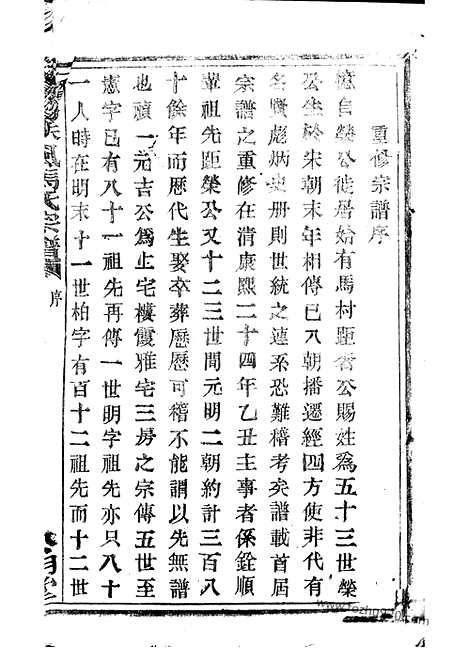 重修宗譜序
憶自榮公徙居始有馬村距奢公賜姓為五十三世榮
公生於宋朝末年相傳已八朝播遷經四方使非代有
名賢彪炳史册則世統之蓮系恐難稽考矣譜載首屆
宗譜之重修在清康熙二十四年乙丑主事者係銓順
輩祖先距榮公又十二三世間元明二朝約計三百八
十餘年而歷代生娶卒葬歷歷可稽不能謂以先無譜
也禎一元吉公為上宅樓霞雅宅三房之宗傳五世至
憲字已有八十一祖先再傳一世明字祖先亦只八十
一人時在明末十一世柏字有百十二祖先而十二世
扶風馬氏宗譜
序